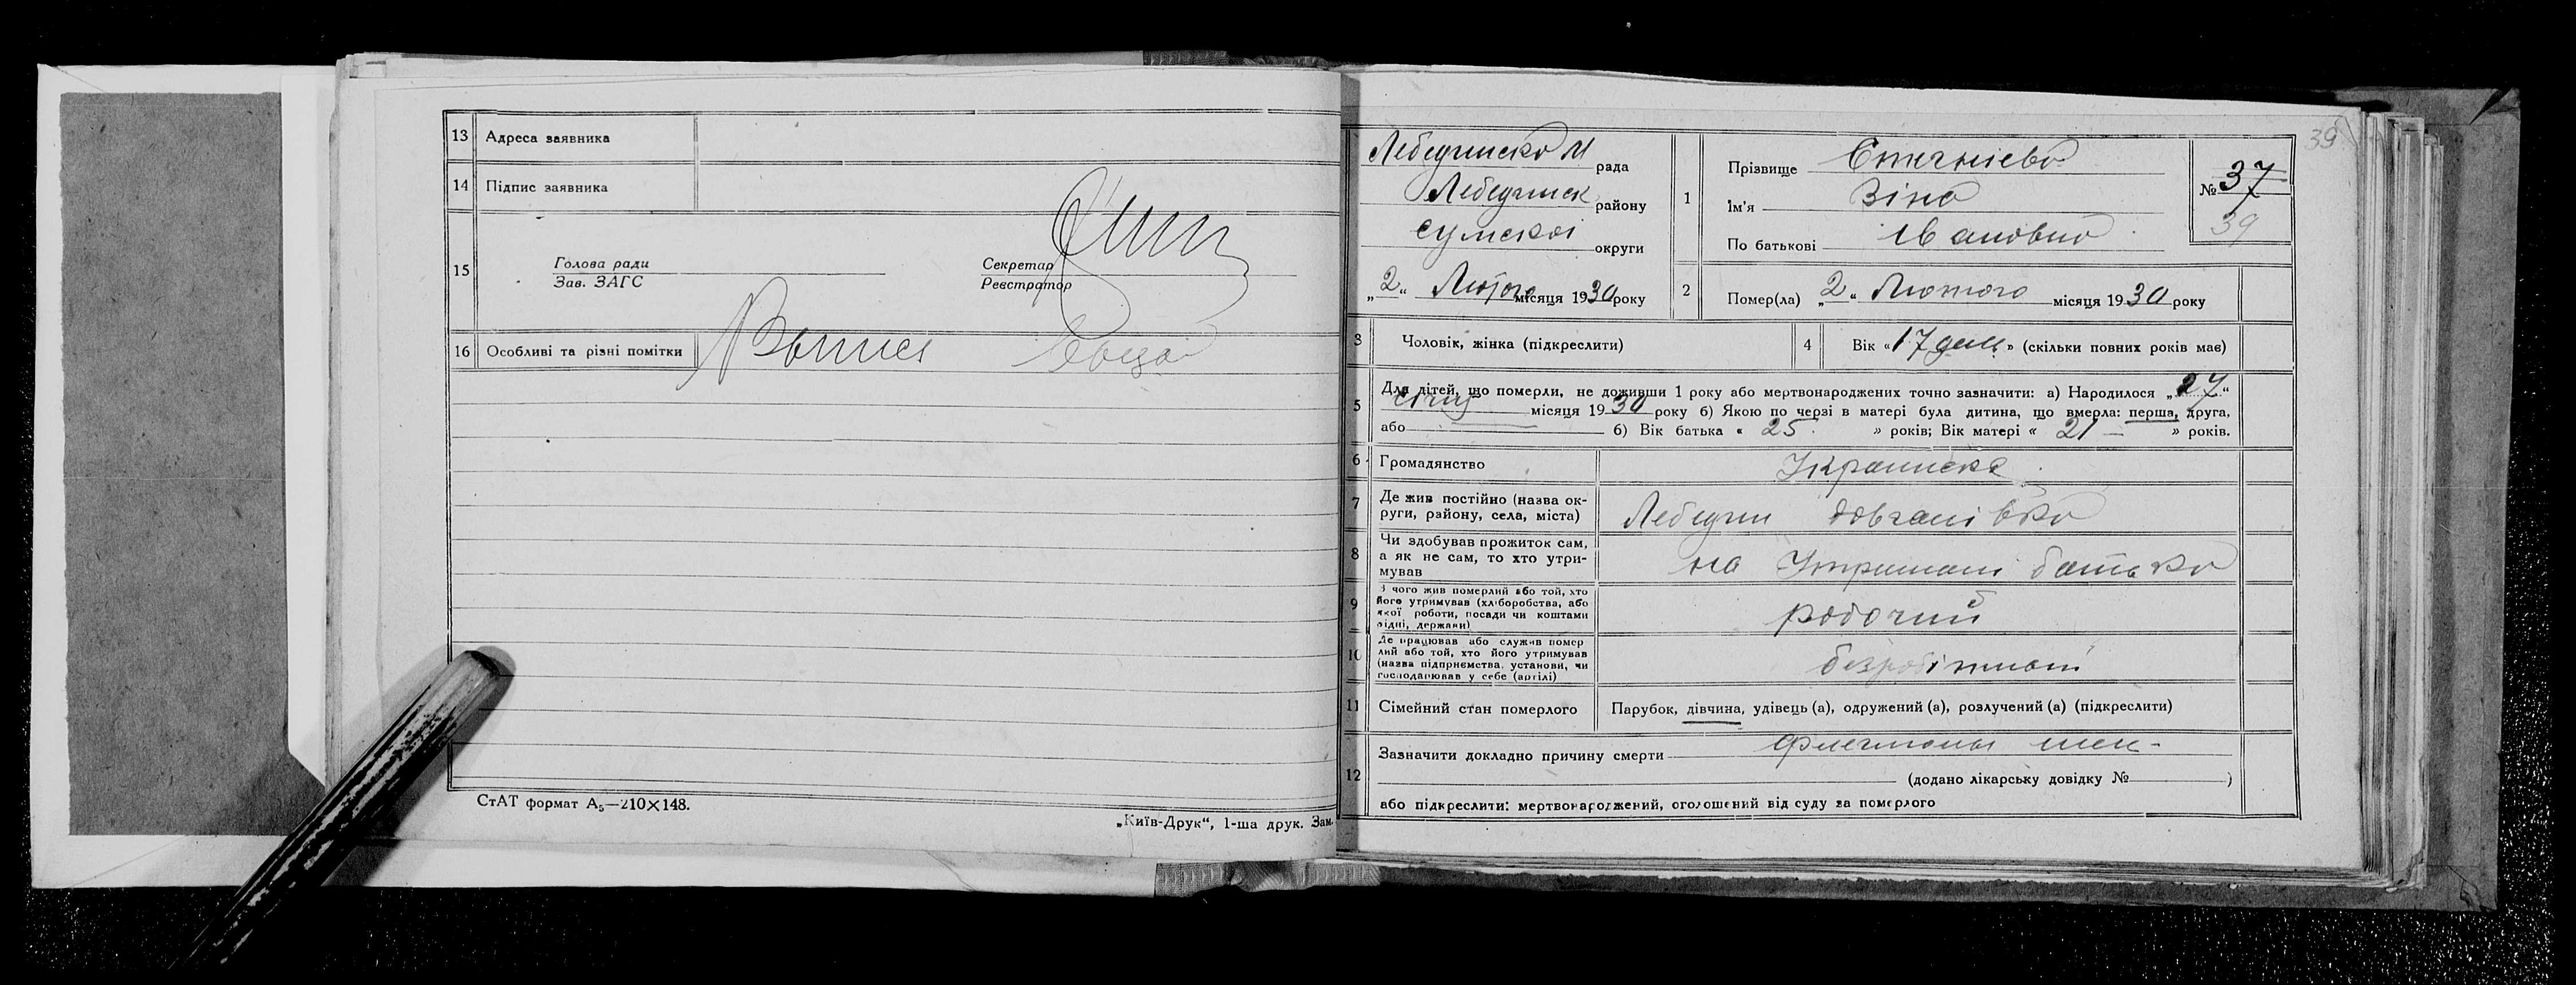 13 Адреса заявника
14 Підпис заявника
15 Голова ради
Зав. ЗАГС
Секретар
Реєстратор
16 Особливі та різні помітки
СтАТ формат А₅—210×148.
„Київ-Друк“, 1-ша друк. Зам.
39
Лебединско М рада
Лебединск району
сумскоі округи
„2“ Лютого місяця 1930 року
1 Прізвище
Ім'я Зіна
По батькові Івановна
№ 37
39
2 Помер(ла) „2“ Лютого місяця 1930 року
3 Чоловік, жінка (підкреслити)
4 Вік «17 день» (скільки повних років має)
5 Для дітей, що померли, не доживши 1 року або мертвонароджених точно зазначити: а) Народилося „27“
січня місяця 1930 року б) Якою по черзі в матері була дитина, що вмерла: перша, друга,
або б) Вік батька « 25 » років; Вік матері « 21 » років.
6 Громадянство Украинска
7 Де жив постійно (назва округи, району, села, міста) Лебедин Довганівка
8 Чи здобував прожиток сам,
а як не сам, то хто утри-
мував
на Утримані батька
9 З чого жив померлий або той, хто
його утримував (хліборобства, або
якої роботи, посади чи коштами
рідні, держави)
робочий
10 Де працював або служив помер
лий або той, хто його утримував
(назва підприємства, установи, чи
господарював у себе (артілі)
безробітний
11 Сімейний стан померлого Парубок, дівчина, удівець (а), одружений (а), розлучений (а) (підкреслити)
12 Зазначити докладно причину смерти флегмона
(додано лікарську довідку № )
або підкреслити: мертвонароджений, оголошений від суду за померлого